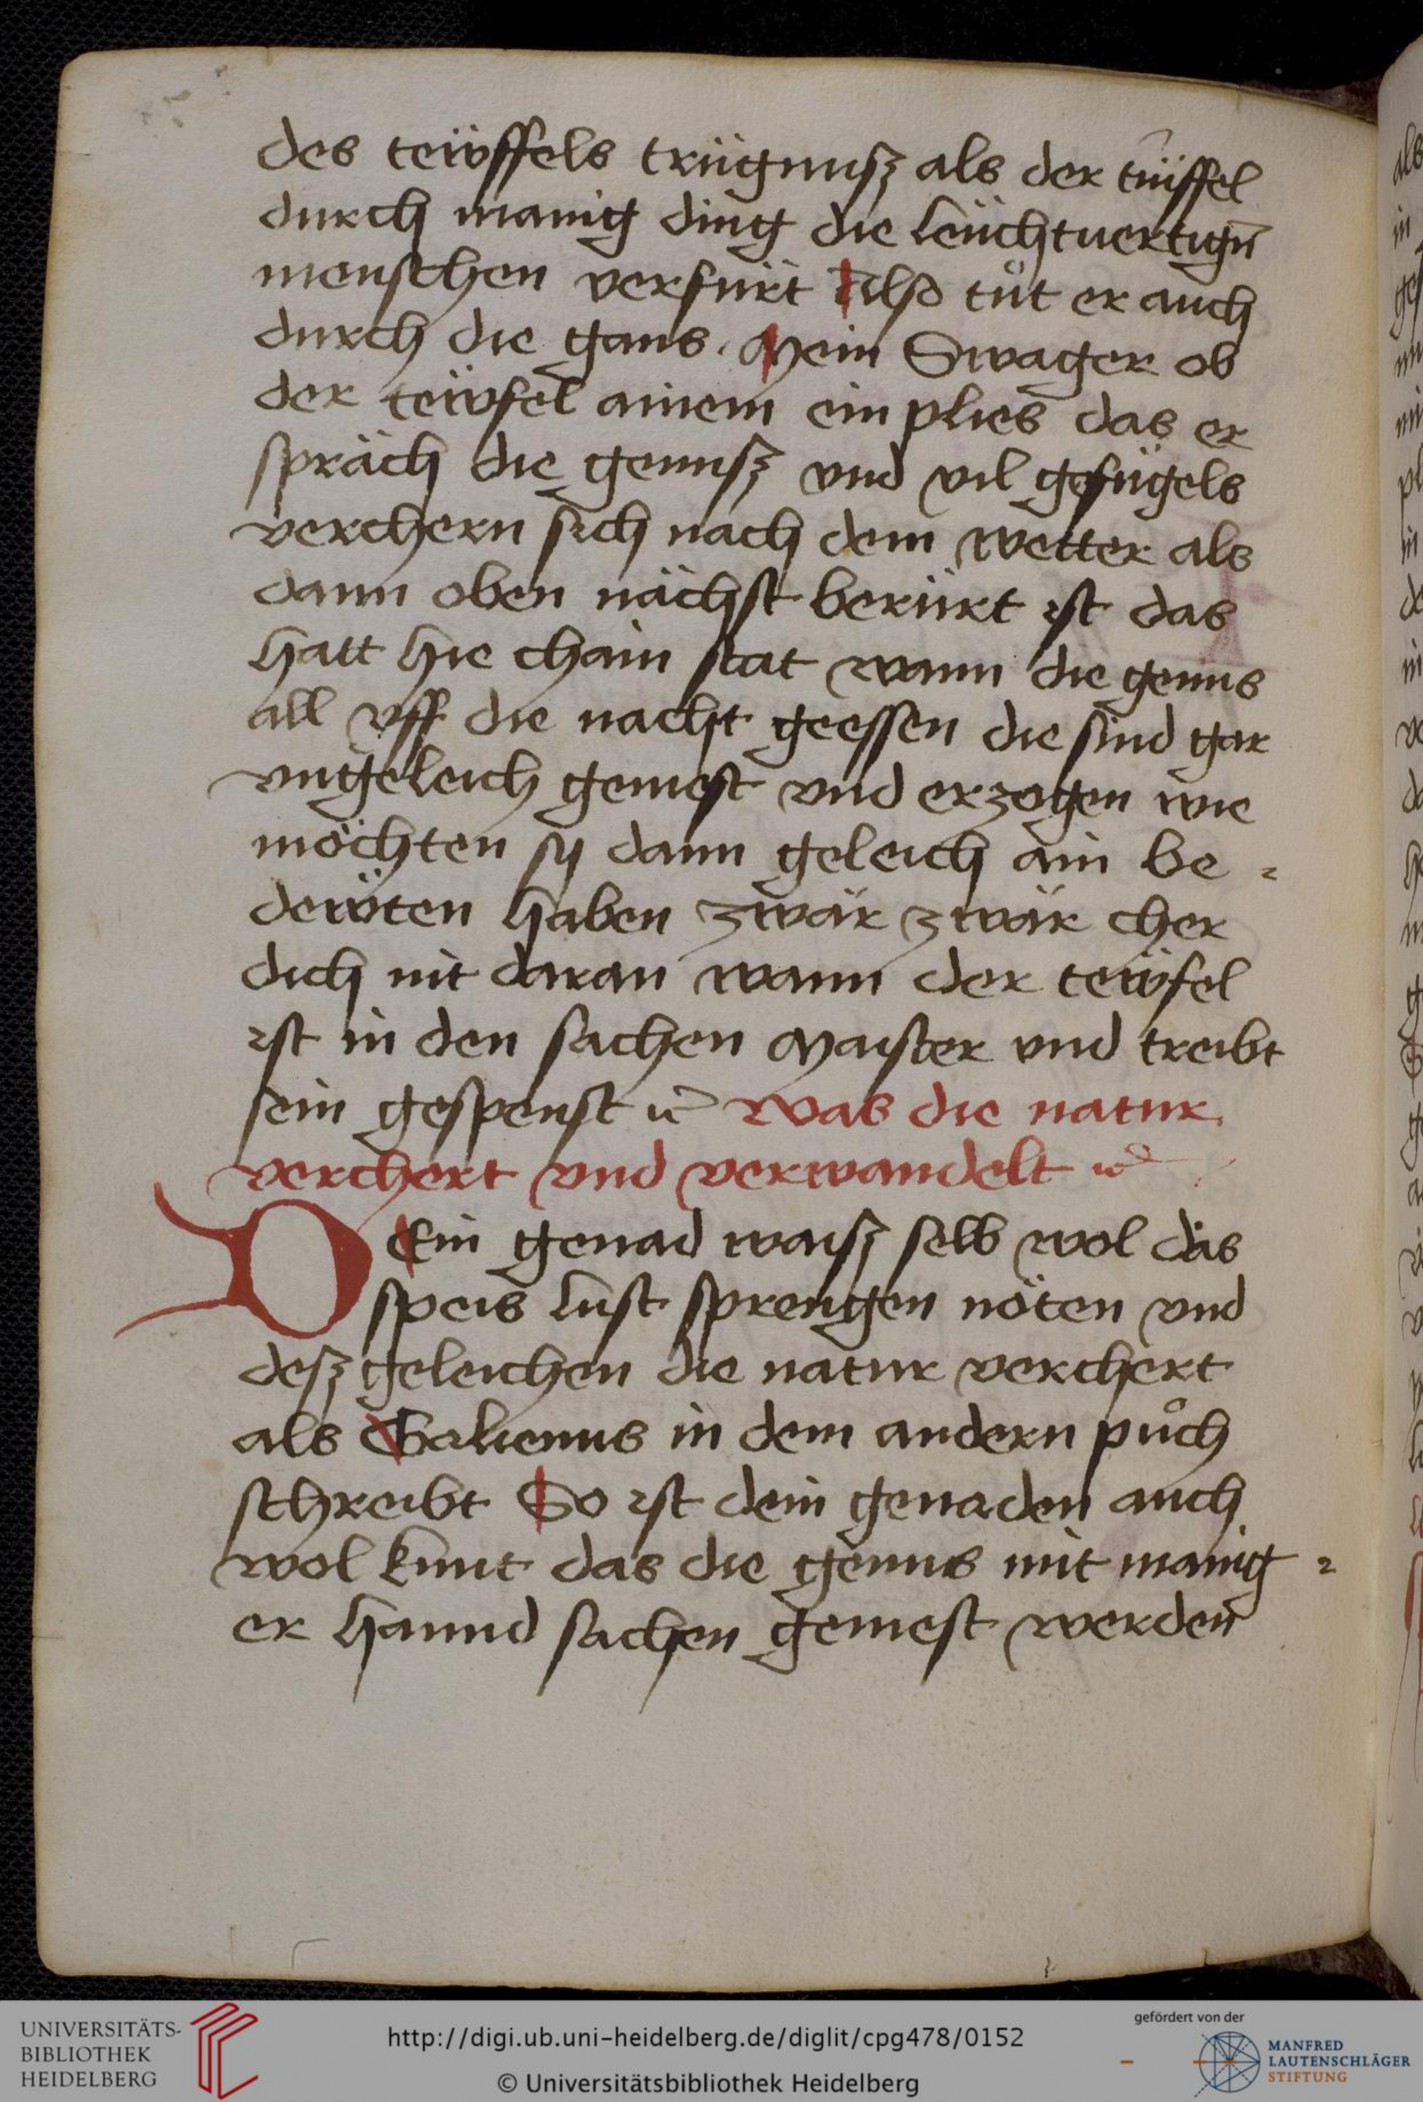 des teẅffels trügnusz als der tüiffel
durch manig ding die leüchtuertign̄
menschen verfürt Also tüt er auch
durch die gans. Mein Swager ob
der teẅfel ainem ein plies das er
spräch die gennsz vnd vil gefügels
verchern sich nach dem wetter als
dann oben nächst berürt ist das
hatt hie chain stat wann die genns
all vff die nacht geessen die sind gar
vngeleich gemest vnd erzogen wie
möchten sy dann geleich ain be=
deẅten haben zwär zwär cher
dich nit daran wann der teẅfel
ist in den sachen Maister vnd treibt
sein gespenst ꝛc was die natur
verchert vnd verwandelt ꝛc
DEin genad waisz selb wol däs
speis lust sprengen nöten vnd
desz geleichen die natur verchert
als Galienus in dem andern puͦch
schreibt So ist dein genaden auch
wol kunt das die genns mit manig=
er hannd sachen gemest werden
UNIVERSITÄTS-
BIBLIOTHEK
HEIDELBERG
http://digi.ub.uni-heidelberg.de/diglit/cpg478/0152
© Universitätsbibliothek Heidelberg
gefördert von der
MANFRED
LAUTENSCHLÄGER
STIFTUNG